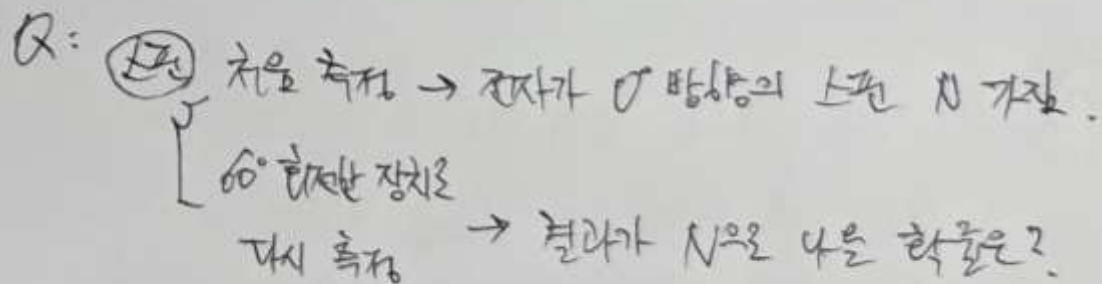 Q: 스핀 처음 측정 → 전자가 σ 방향의 스핀 N 가짐.
60° 회전한 장치로
다시 측정 → 결과가 N으로 나올 확률은?